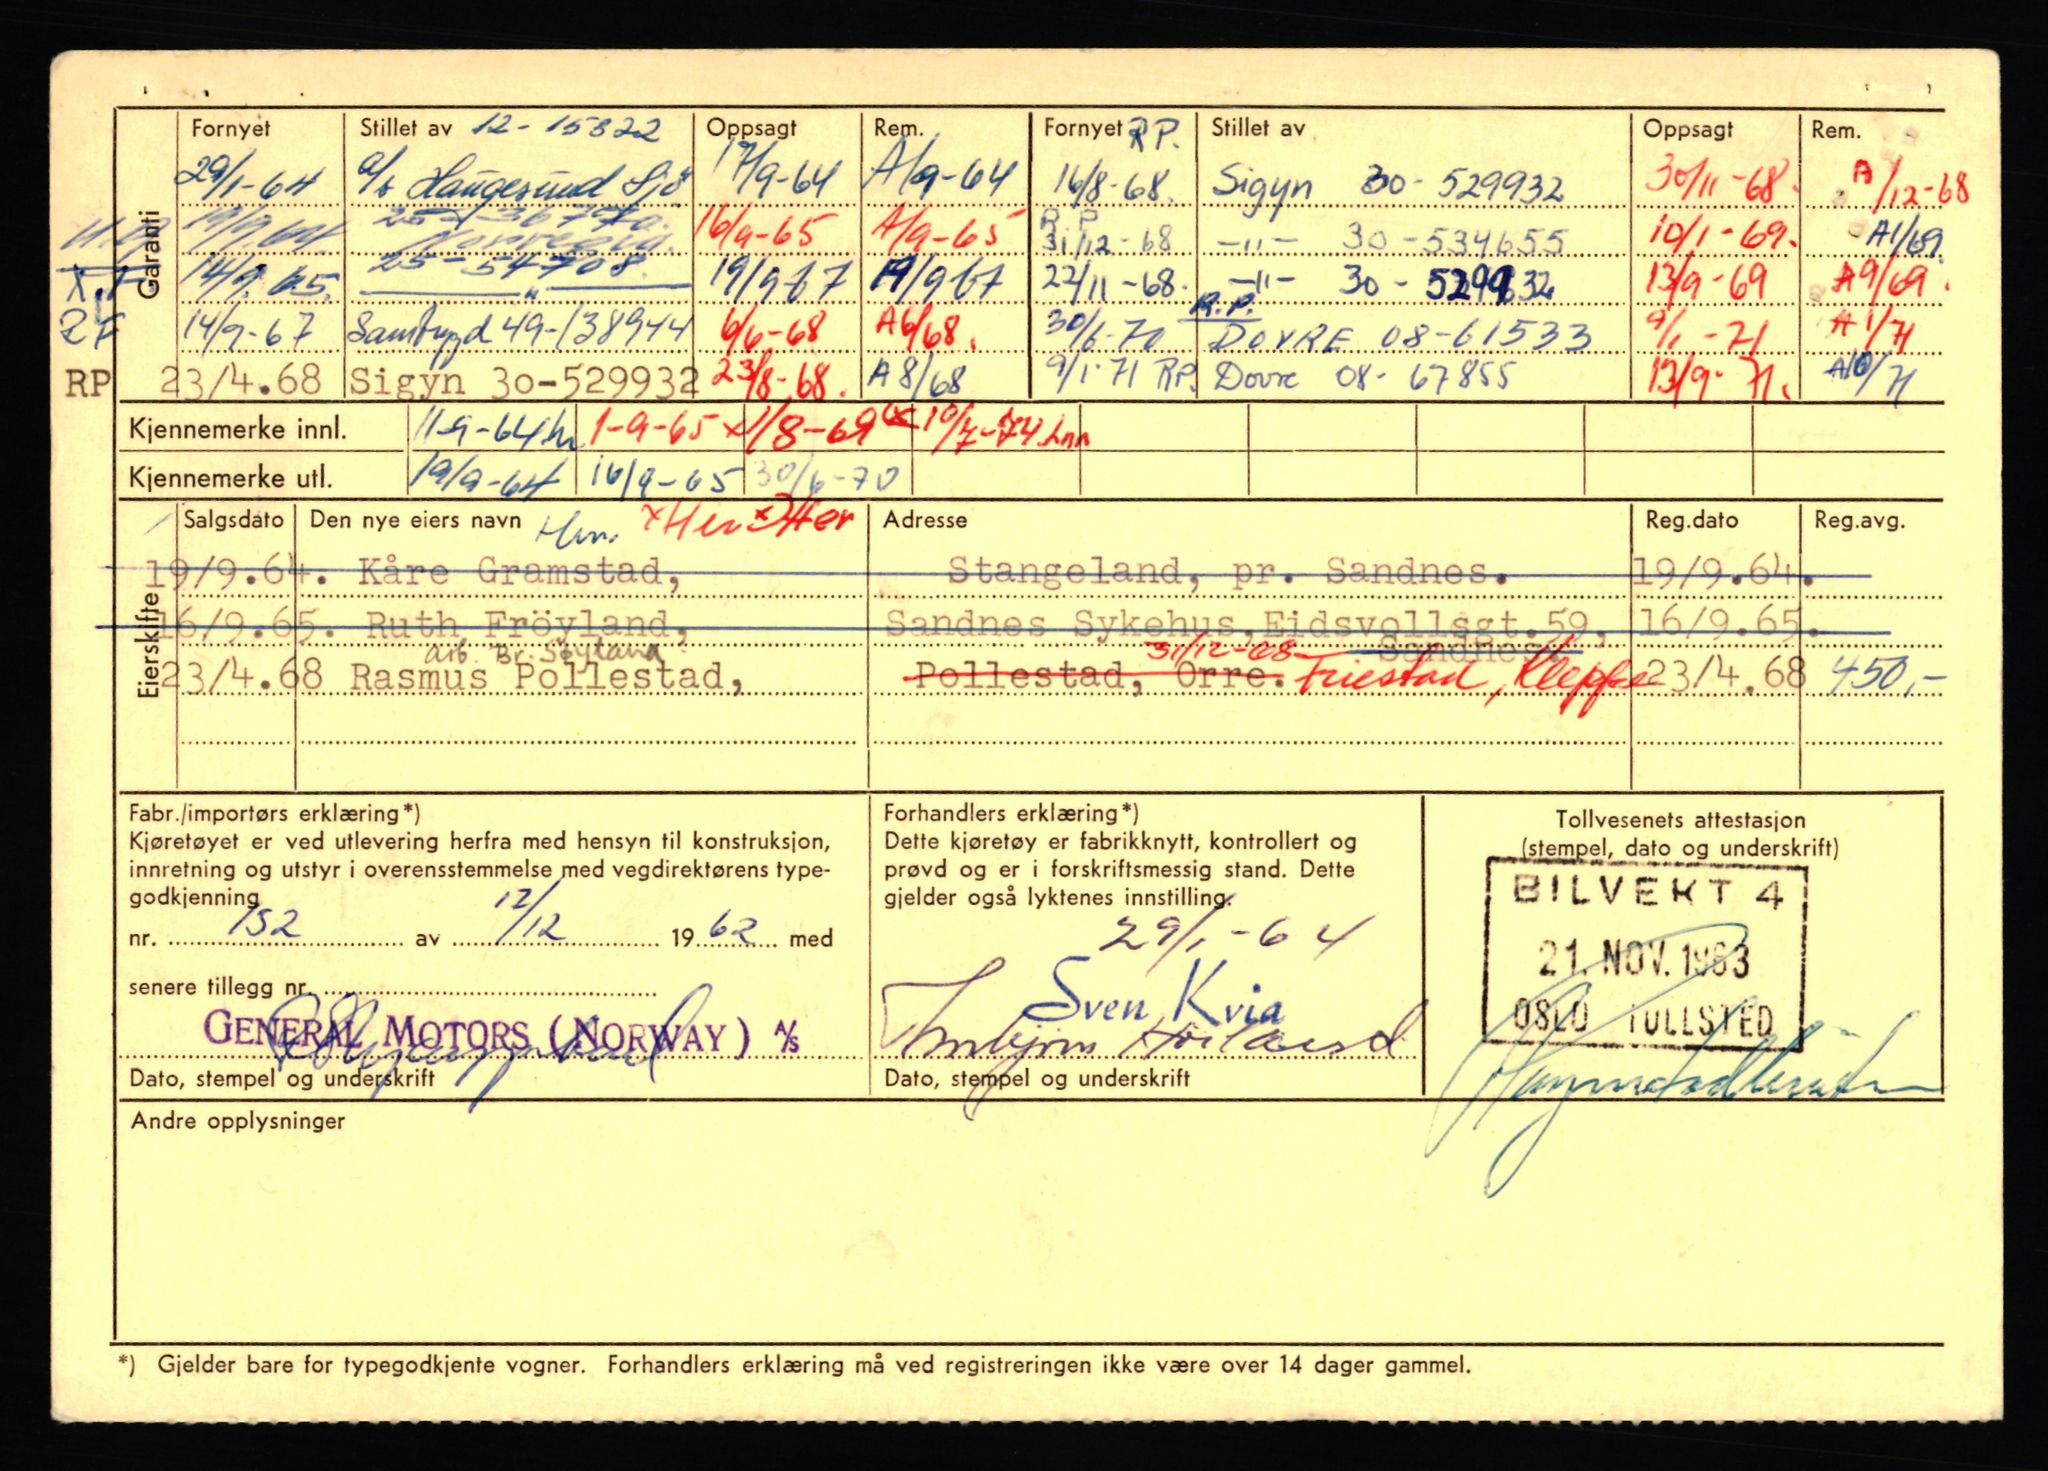 Garanti
Fornyet Stillet av 12-15822 Oppsagt Rem. Fornyet RP. Stillet av Oppsagt Rem.
29/1-64 a/s Haugesund Sjø 17/9-64 A/9-64 16/8-68. Sigyn 30-529932 30/11-68. A/12-68
19/9.64 25-36770. Norvegia. 16/9-65 A/9-65 RP 31/12-68 -"- 30-534655 10/1-69. A1/69.
14/9.65. 25-54708. " 19/9 67 A/9 67 22/11-68. -"- 30-529932 13/9-69 A9/69.
14/9-67 Samtrygd 49-138944 6/6-68 A6/68. 30/6-70 R.P. DOVRE 08-61533 9/1-71 A1/71
RP 23/4.68 Sigyn 30-529932 23/8-68. A8/68 9/1-71 RP. Dovre 08-67855 13/9-71. A10/71
Kjennemerke innl. 11-9-64 1-9-65 x 1/8-69 10/7-74
Kjennemerke utl. 19/9-64 16/9-65 30/6-70
Eierskifte
Salgsdato Den nye eiers navn Adresse Reg.dato Reg.avg.
19/9.64. Kåre Gramstad, Stangeland, pr. Sandnes. 19/9.64.
16/9.65. Ruth Fröyland, Sandnes Sykehus, Eidsvollsgt.59, 16/9.65.
Sandnes.
31/12-68
23/4.68 Rasmus Pollestad, Pollestad, Orre. Friestad, Kleppe 23/4.68 450,-
Fabr./importørs erklæring*)
Kjøretøyet er ved utlevering herfra med hensyn til konstruksjon,
innretning og utstyr i overensstemmelse med vegdirektørens type-
godkjenning
nr. 152 av 12/12 1962 med
senere tillegg nr.
GENERAL MOTORS (NORWAY) A/S
Dato, stempel og underskrift
Forhandlers erklæring*)
Dette kjøretøy er fabrikknytt, kontrollert og
prøvd og er i forskriftsmessig stand. Dette
gjelder også lyktenes innstilling.
29/1-64
Sven Kvia
Dato, stempel og underskrift
Tollvesenets attestasjon
(stempel, dato og underskrift)
BILVEKT 4
21. NOV. 1963
OSLO TOLLSTED
Andre opplysninger
*) Gjelder bare for typegodkjente vogner. Forhandlers erklæring må ved registreringen ikke være over 14 dager gammel.